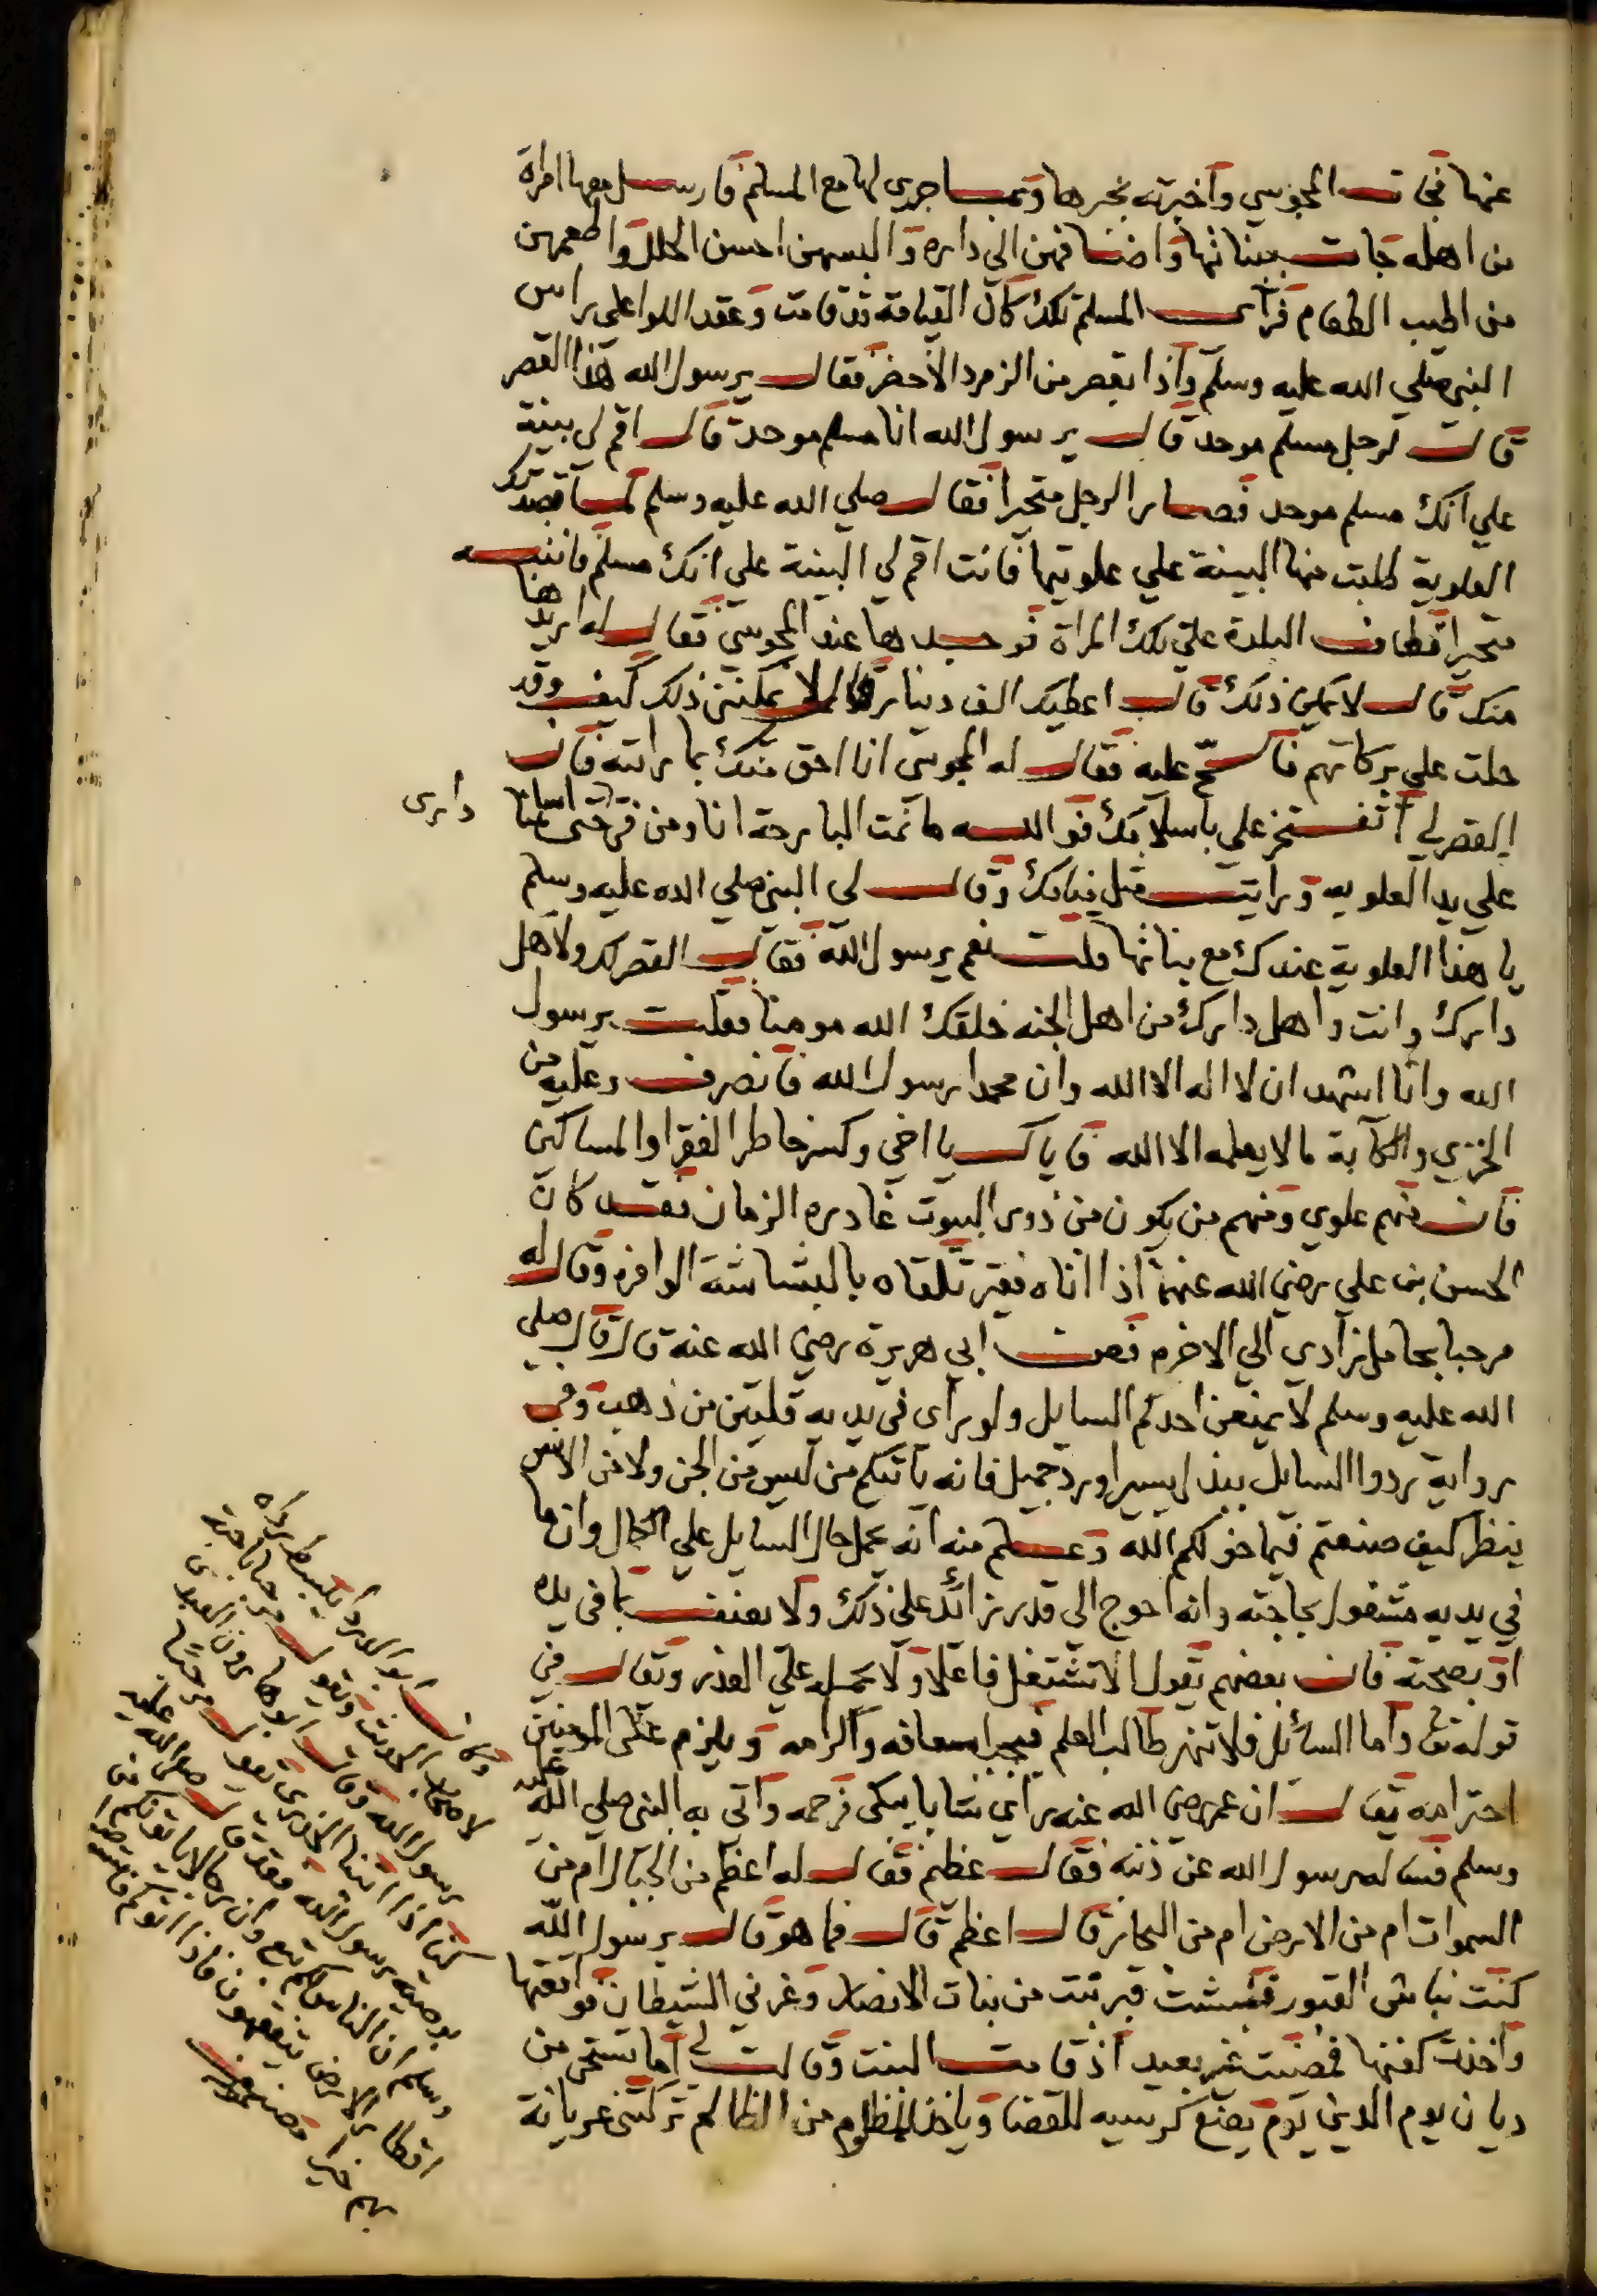 عنها فجات المجوسي واخبرته بخبرها وبما جرى لها مع المسلم فارسل معها امراة
من اهله فجات ببناتها واضافهن الى داره والبسهن احسن الحلل واطعمهن
من اطيب الطعام فراى المسلم تلك كان القيامة قد قامت وعقد اللوا على راس
النبي صلي الله عليه وسلم واذا بقصر من الزمرد الاخضر فقال يرسول الله لمن هذا القصر
قال لرجل مسلم موحد قال يرسول الله انا مسلم موحد قال اقم لي بينة
علي انك مسلم موحد فصار الرجل متحيرا فقال صلي الله عليه وسلم لما قصدتك
العلوية طلبت منها البينة علي علويتها فانت اقم لي البينة علي انك مسلم فانتبه
متحيرا فطاف البلدة علي تلك المراة فوجدها عند المجوسي فقال له اريدها
منك قال لا يمكن ذلك قال اعطيك الف دينار قال لا يمكنني ذلك كيف وقد
حلت علي بركاتهم فالح عليه فقال له المجوسي انا احق منك بما رايته فان
القصر لي اتفتخر علي باسلامك فوالله ما نمت البارحة انا ومن في داري حتى اسلمنا
علي يد العلويه ورايت مثل منامك وقال لى النبي صلي الله عليه وسلم
يا هذا العلوية عندك مع بناتها قلت نعم يرسول الله فقال القصر لك ولاهل
دارك وانت واهل دارك من اهل الجنه خلقك الله مومنا فقلت يرسول
الله وانا اشهد ان لا اله الا الله وان محمدا رسول الله فانصرف وعليه من
الخزي والكآبة ما لا يعلمه الا الله فاياك يا اخي وكسر خاطر الفقرا والمساكين
فان منهم علوي ومنهم من يكون من ذوى البيوت غادره الزمان فقد كان
الحسن بن علي رضي الله عنهما اذا اتاه فقير تلقاه بالبشاشة الوافره وقال له
مرحبا بحامل زادي الي الاخره فعن ابي هريرة رضي الله عنه قال قال صلي
الله عليه وسلم لا يمنعن احدكم السايل ولو راى في يديه قلبين من ذهب وفي
رواية ردوا السايل ببذل يسير او رد جميل فانه ياتيكم من ليس من الجن ولا من الانس
ينظر كيف صنعتم فيما خولكم الله وعلم منه انه يحمل حال السايل علي الكمال وان ما
في يديه مشغول بحاجته وانه احوج الى قدر زائد علي ذلك ولا يعنف بما في يده
او بصحته فان بعضهم يقول الا تشتغل فاعلا ولا يحمله علي العذر وقال في
قوله تعالى واما السائل فلا تنهر طالب العلم فيجب اسعافه واكرامه ويلزم علي المومنين
احترامه يقال ان عمر رضي الله عنه راي شابا يبكى فرحمه واتي به النبي صلي الله عليه
وسلم فساله رسول الله عن ذنبه فقال عظيم فقال له اعظم من الجبال ام من
السموات ام من الارض ام من البحار قال اعظم قال فما هو قال يرسول الله
كنت نباش القبور فنبشت قبر بنت من بنات الانصار وغرني الشيطان فواقعتها
واخذت كفنها فمضيت غير بعيد اذ قامت البنت وقالت لي اما تستحي من
ديان يوم الدين يوم يضع كرسيه للقضا وياخذ للمظلوم من الظالم تركتني عريانة
وكان ابو الدردا يبسط رداه
رسول الله وقال
كنا اذا اتينا الخدري يقول مرحبا
بوصية رسول الله فقد قال صلي الله عليه
وسلم ان الناس لكم تبع وان رجالا ياتونكم من
اقطار الارض يتفقهون فاذا اتوكم فاستوصوا
بهم خيرا